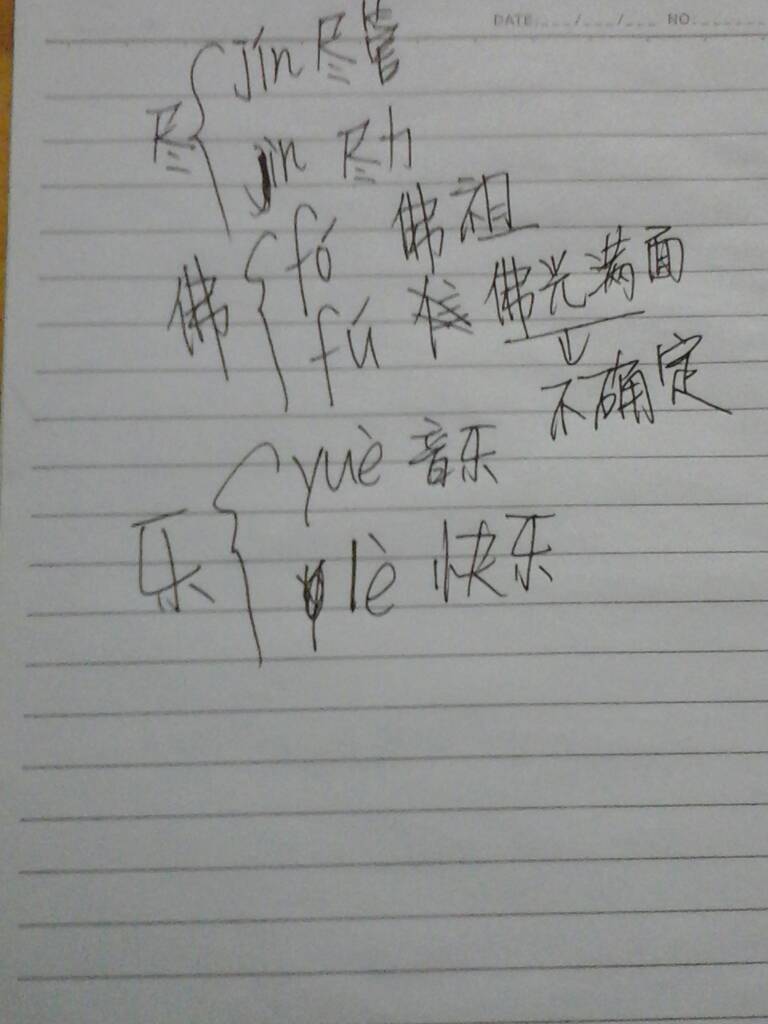 DATE..../..../.... NO.........
尽 jín 尽管
jìn 尽力
佛 fó 佛祖
fú 佛光满面
不确定
乐 yuè 音乐
lè 快乐